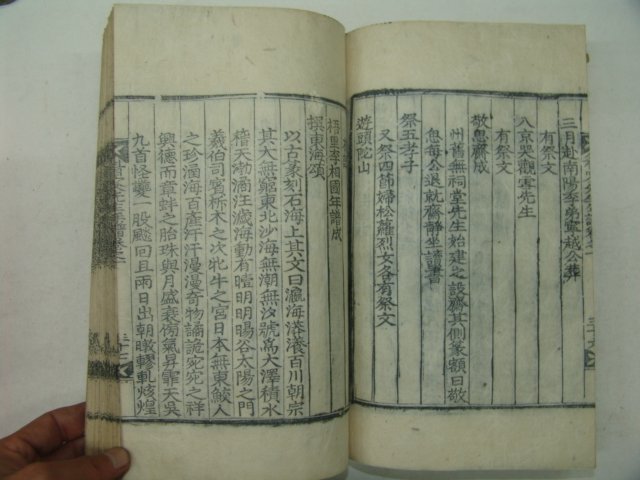 三月赴南陽季弟寧越公葬
有祭文
入京哭觀雪先生
有祭文
敬思齋成
州舊無祠堂先生始建之設齋其側篆額曰敬
思每公退就齋靜坐讀書
祭五孝子
又祭四節婦松蘿烈女各有祭文
遊頭陀山
梧里李相國年譜成
撰東海頌
以古篆刻石海上其文曰瀛海漭瀁百川朝宗
其大無窮東北沙海無潮無汐號爲大澤積水
稽天浡潏汪濊海動有曀明明暘谷太陽之門
羲伯司賓析木之次牝牛之宮日本無東鮫人
之珍涵海百產汗汗漫漫奇物譎詭宛宛之祥
興德而章蚌之胎珠與月盛衰傍氣昇霏天吳
九首怪夔一股飈回且雨日出朝暾轇軋炫煌